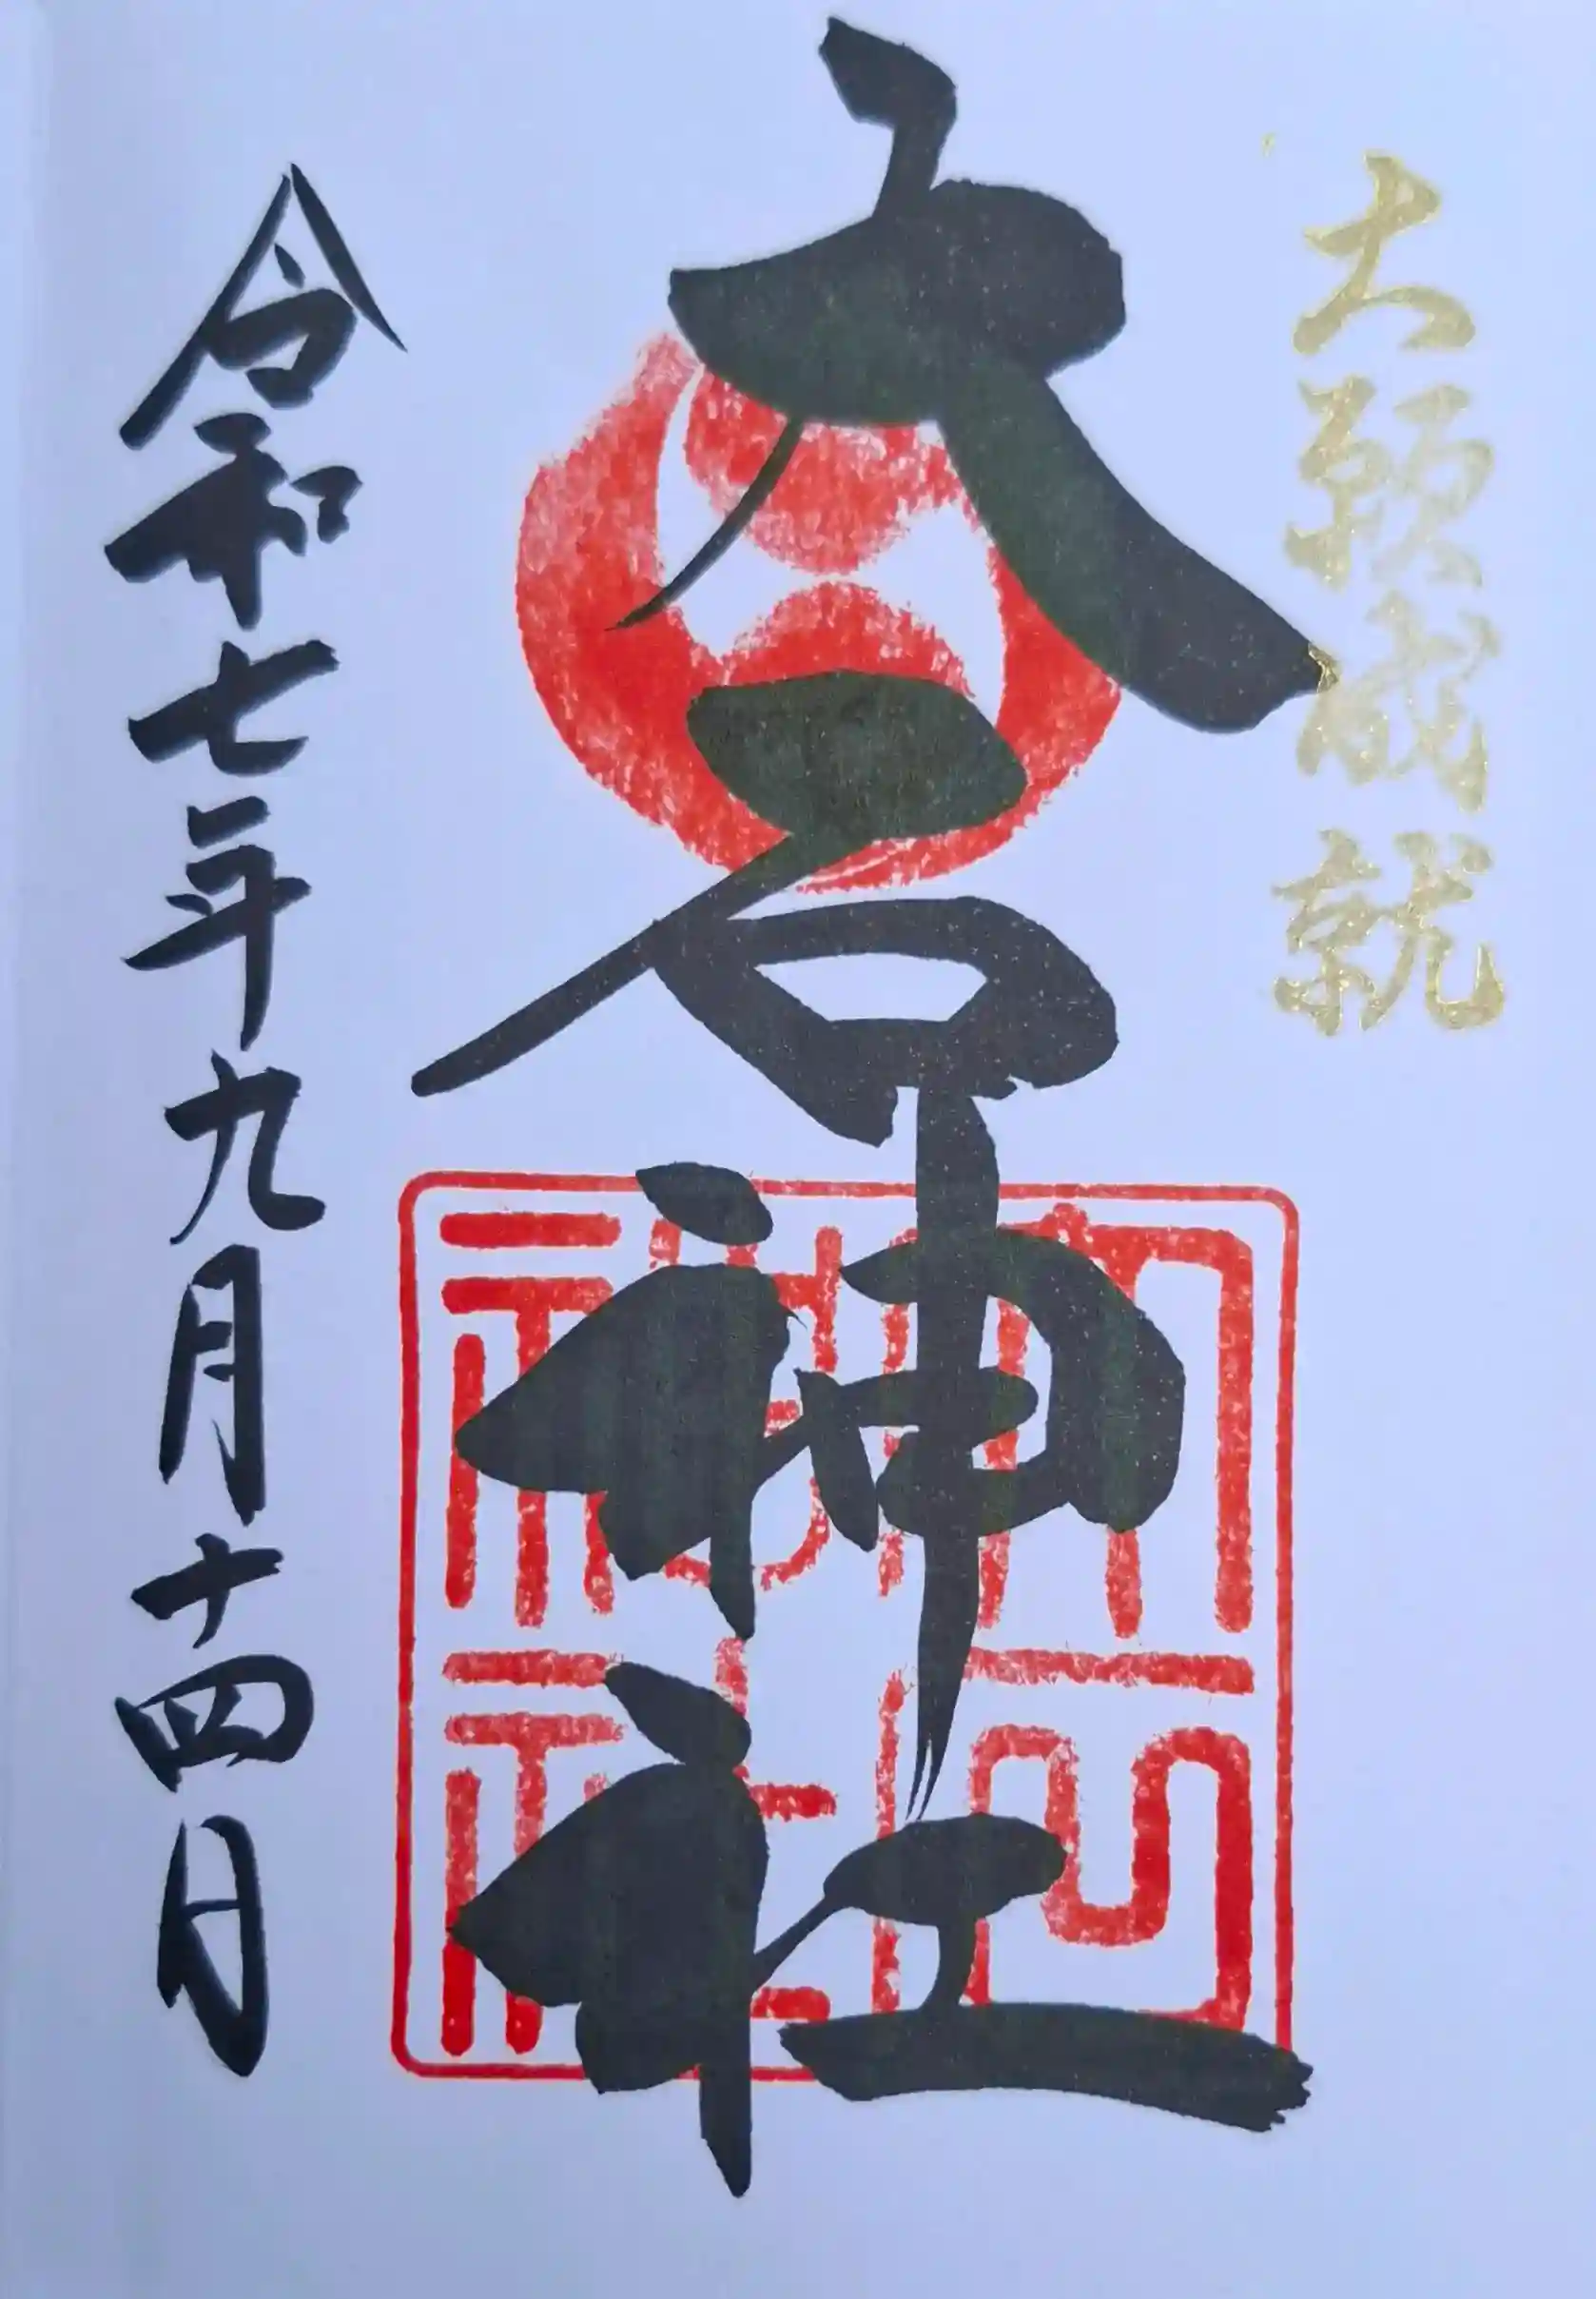 大願成就
大石神社
令和七年九月十四日